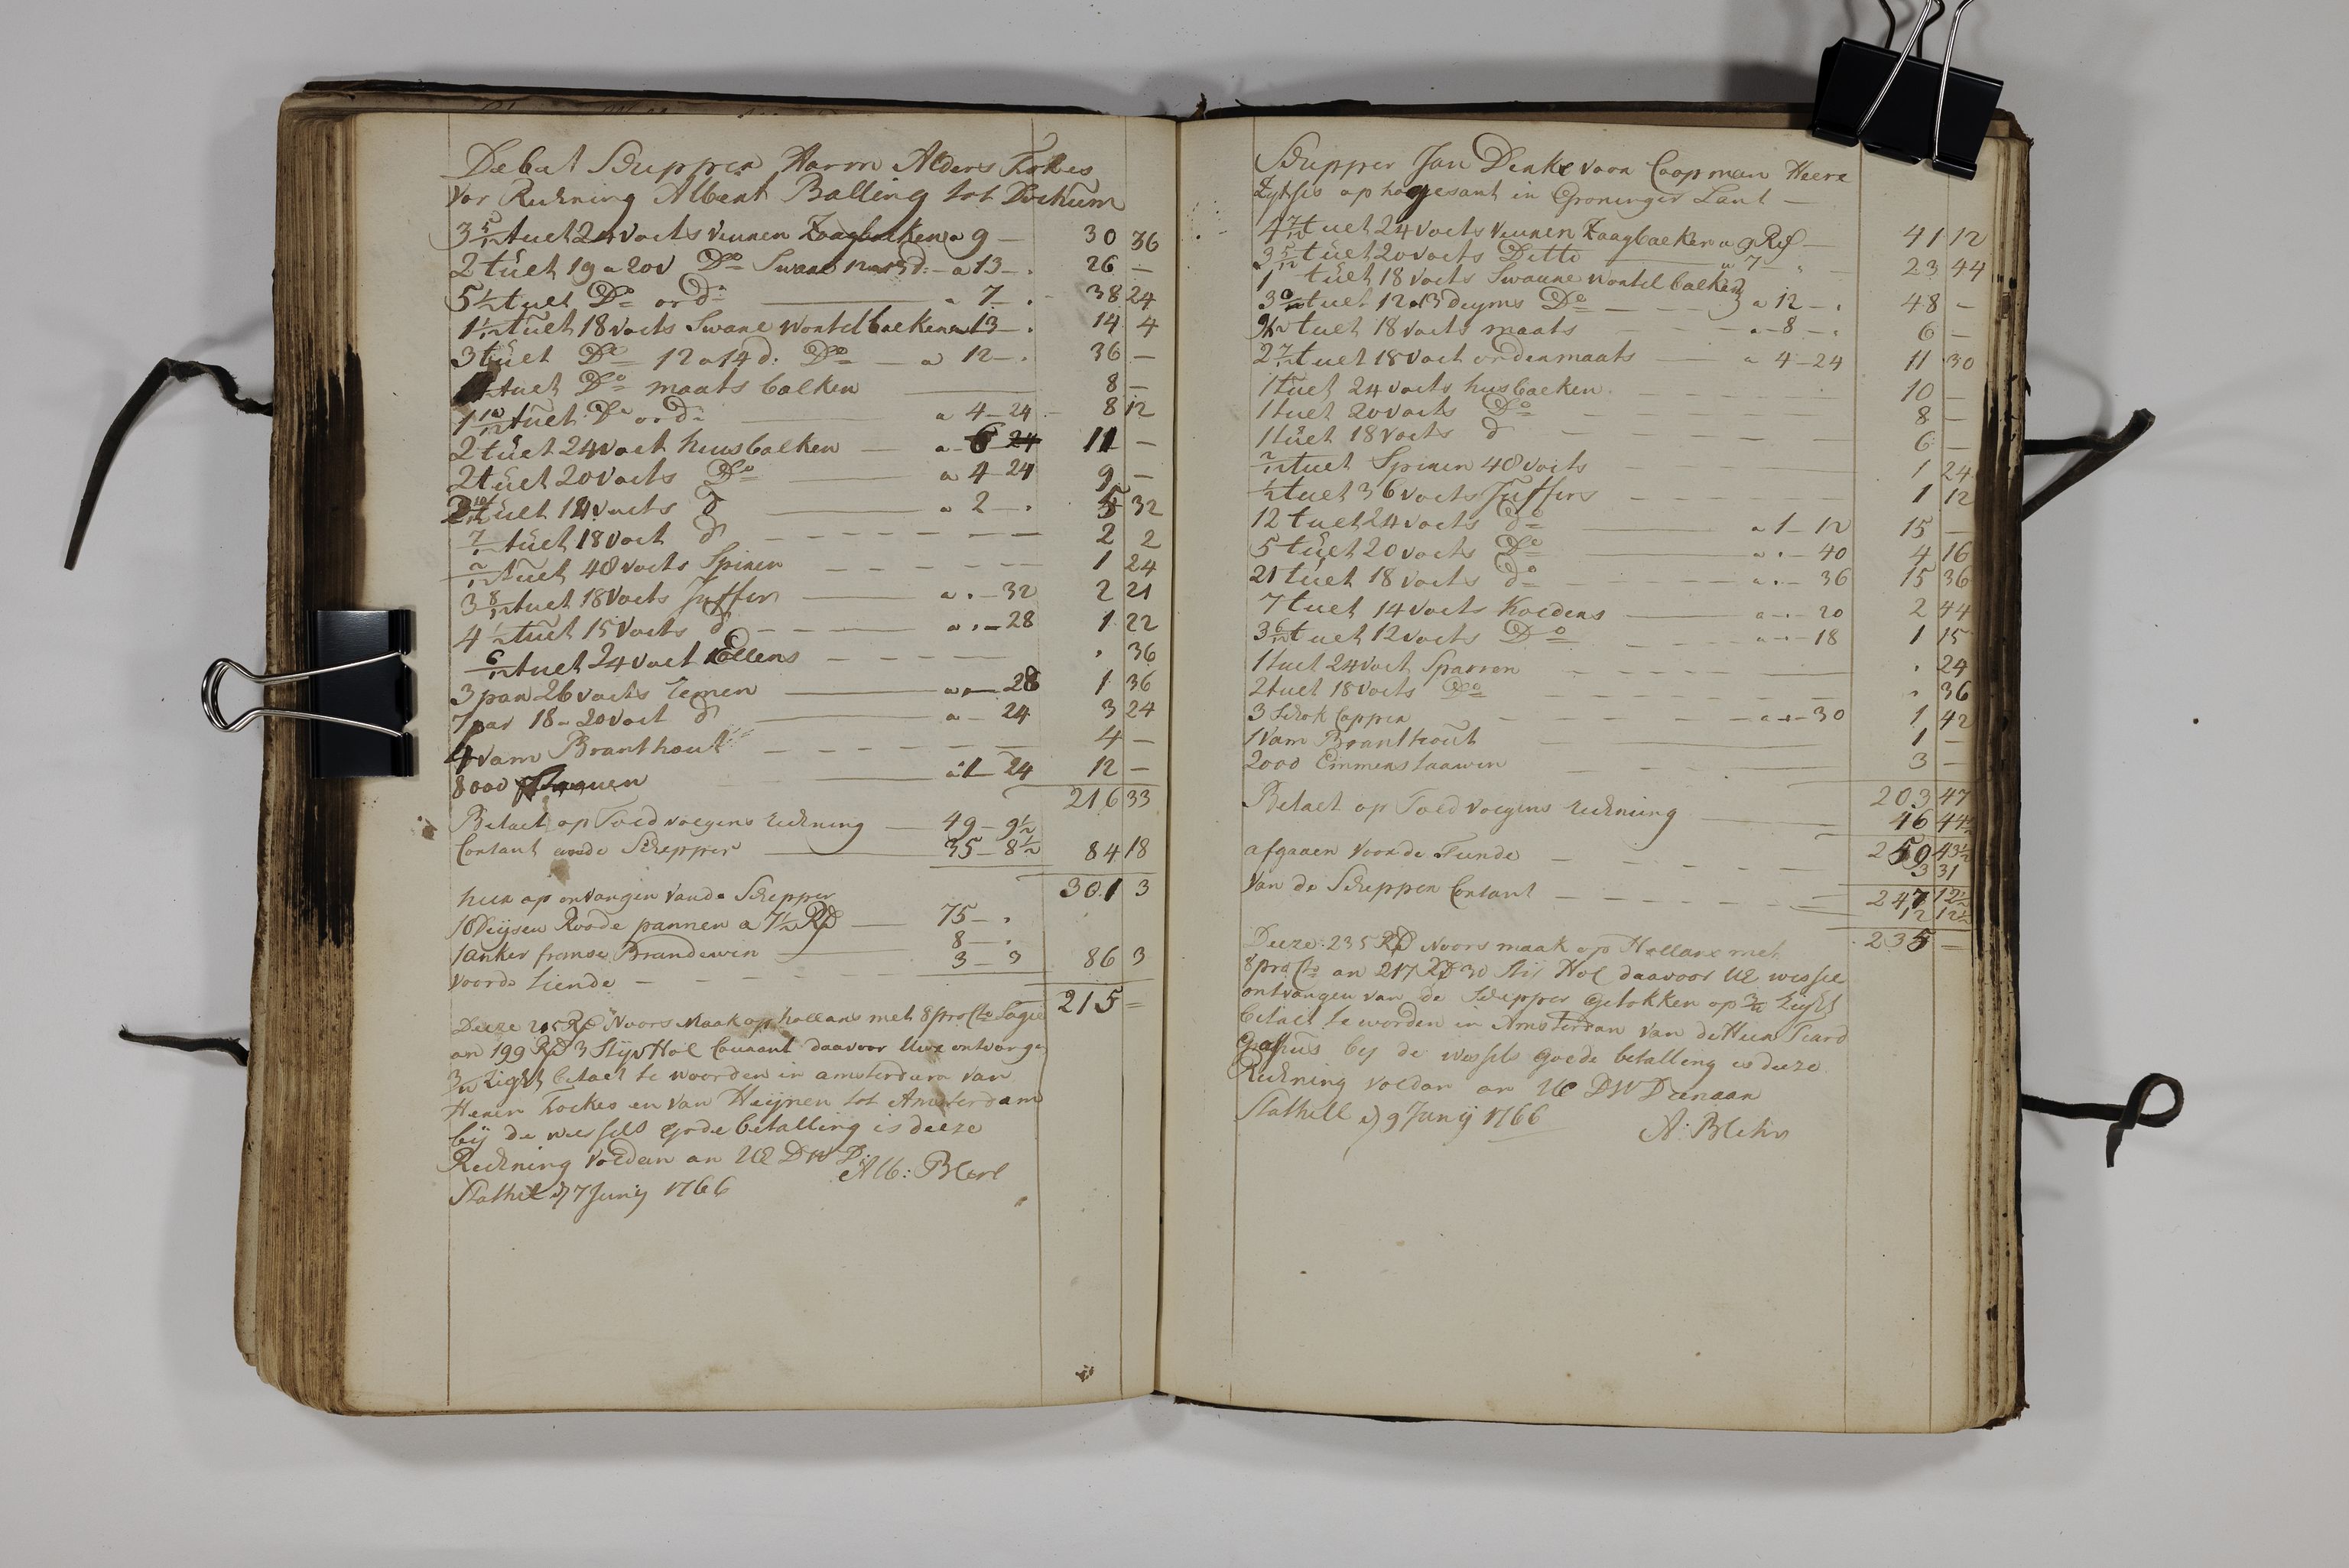 Debet Schipper Harm Alders Fokes
Vor Reckning Albert Balling tot Dockum
3 5/12 tuet 24 voets vuuren Zaagbalken a 9 — 30 36
2 tuet 19 a 20 v Do Swaare 12 a 13 d: — a 13 — . 26 —
5 1/2 tuet Do ord: — a 7 — . 38 24
1 1/12 tuet 18 voets Sware Wontelbaeken a 13 — . 14 4
3 tuet Do 12 a 14 d. Do — a 12 — . 36 —
tuet Do maats balken — 8 —
1 10/12 tuet Do ord: a 4 – 24 — 8 12
2 tuet 24 voet husbalken — a 6 24 11 —
2 tuet 20 voets Do — a 4 24 9 —
2 10/12 tuet 14 voets d — a 2 — . 5 32
7/12 tuet 18 voet d — 2 2
2/12 tuet 40 voets Spiren — 1 24
3 8/12 tuet 18 voets Juffers — a . — 32 2 21
4 1/2 tuet 15 voets d — a . — 28 1 22
6/12 tuet 24 voet Ellens — . 36
3 par 26 voets Remen — a . — 28 1 36
7 par 18 a 20 voet d — a — 24 3 24
4 vam Branthout — 4 —
8000 — a 1 — 24 12 —
216 33
Betaelt op Toed voegens reckning — 49 – 9 1/2
Contant aande Schepper — 35 – 8 1/2 84 18
301 3
hier op ontvangen van de Schepper
10 Duysen Roode pannen a 7 1/2 RD — 75 — .
1 anker franse Brandewin — 8 — .
voorde tiende — 3 – 3 86 3
215 =
Deeze 215 RD Noors Maak op hollans met 8 pro Cto Lagie
an 199 RD 3 Styv Hol Courant daavoor Uwe ontvange
3/m Zight betaelt te woorden in amsterdam van
Heren Fockes en Van Heijnen tot Amsterdam
bij de wessels goede betalling is deeze
Reckning voldan an UE DW D:
Stathel d 7 Junij 1766
Schipper Jan Denke voor Coopman Heere
Zytses op hogesant in Groninger Lant —
4 7/12 tuet 24 voets vuuren Zaagbaeken a 9 RD — 41 12
3 5/12 tuet 20 voets Ditto — a 7 — 23 44
1 tuet 18 voets Swaure Wontel balken
3 0/12 tuet 12 a 13 duyms Do — } a 12 — . 48 —
9/12 tuet 18 voets maats — a – 8 — . 6 —
2 7/12 tuet 18 voet ordenmaats — a 4 – 24 11 30
1 tuet 24 voets husbaeken — 10 —
1 tuet 20 voets Do — 8 —
1 tuet 18 voets d — 6 —
2/12 tuet Spiren 40 voets — 1 24
1/2 tuet 36 voets Juffers — 1 12
12 tuet 24 voets do — a 1 – 12 15 —
5 tuet 20 voets Do — a . – 40 4 16
21 tuet 18 voets do — a . – 36 15 36
7 tuet 14 voets Koedens — a . – 20 2 44
3 6/12 tuet 12 voets Do — a . – 18 1 15
1 tuet 24 voet Sparren — . 24
2 tuet 18 voets Do — . 36
3 Schok Cappen — a . – 30 1 42
1 vam Branthout — 1 —
2000 Emmens taawen — 3 —
203 47
Betaelt op Toed voegens reckning — 46 44 1/2
259 43 1/2
afgaaen voorde Tiende — 3 31
247 12 1/2
van de Schepper Contant — 12 12 1/2
235 —
Deeze 235 RD Noors maak op Hollans met
8 pro Cto an 217 RD 30 Stij Hol daavoor UE wessel
ontvangen van de Schepper getokken op 3/m Zeight
betaelt te worden in Amsterdam van de Heer Tiard
bij de wessels goede betalling is deeze
Reckning voldan an UE DW Dienaar
Stathell d 9 Junij 1766